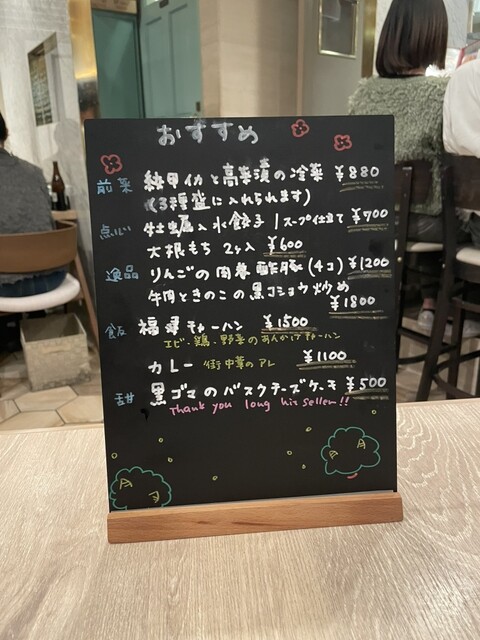 おすすめ
前菜 純甲イカと高菜漬の冷菜 ¥880
(3種盛に入れられます)
点心 牡蠣入水餃子 / スープ仕立て ¥700
大根もち 2ヶ入 ¥600
逸品 りんごの肉巻酢豚 (4コ) ¥1200
牛肉ときのこの黒コショウ炒め
¥1800
飯 福建チャーハン ¥1500
エビ・鶏・野菜のあんかけチャーハン
カレー 街中華のアレ ¥1100
甜 黒ゴマのバスクチーズケーキ ¥500
Thank you long hit seller!!